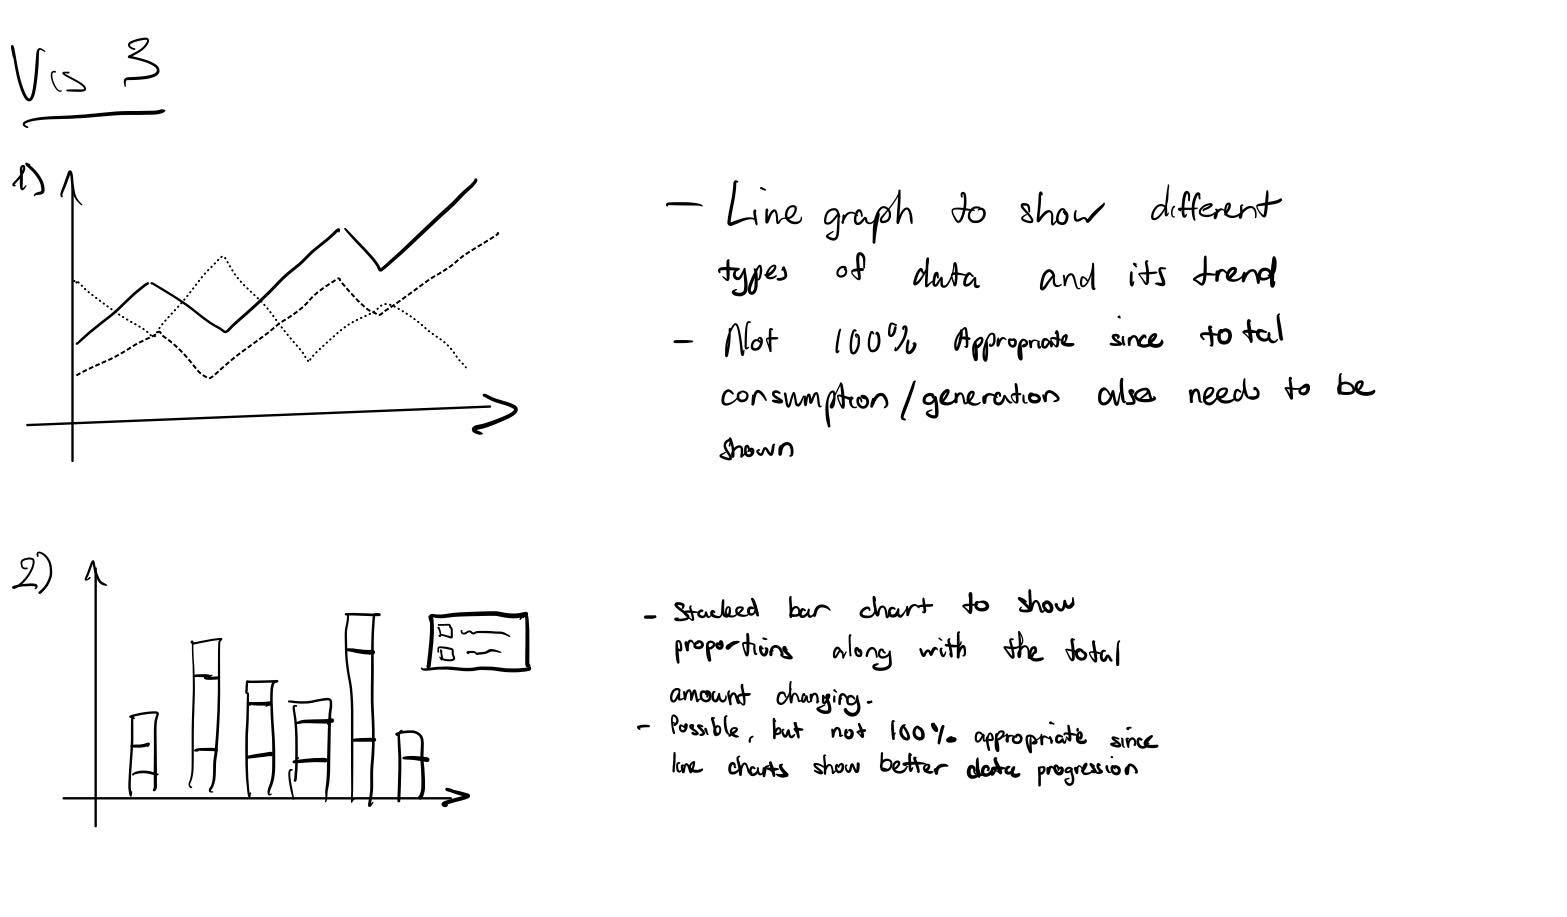 Vis 3
1)
- Line graph to show different
types of data and its trend
- Not 100% Appropriate since total
consumption/generation also needs to be
shown
2)
- Stacked bar chart to show
proportions along with the total
amount changing.
- Possible, but not 100% appropriate since
line charts show better data progression